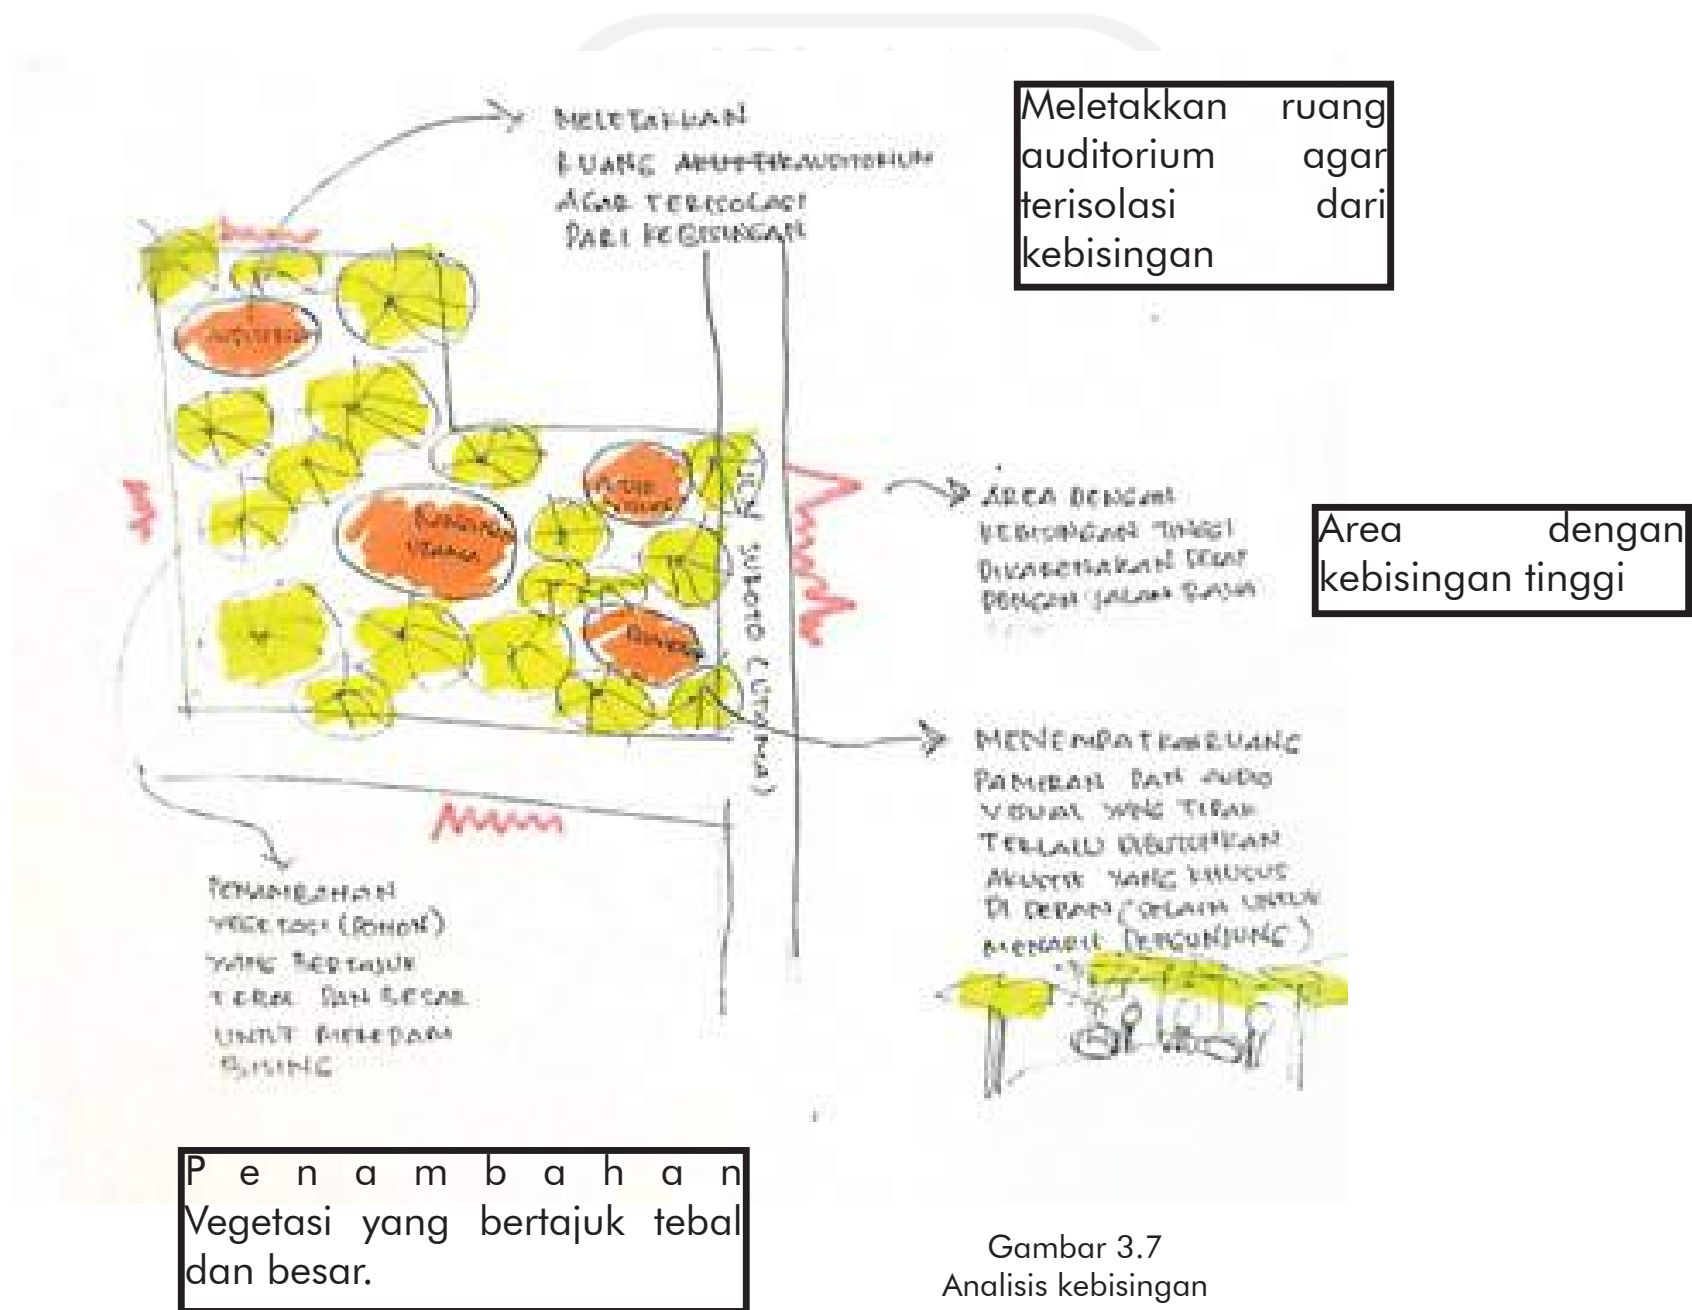 MELETAKKAN
RUANG AUDITORIUM
AGAR TERISOLASI
DARI KEBISINGAN
Meletakkan ruang
auditorium agar
terisolasi dari
kebisingan
AREA DENGAN
KEBISINGAN TINGGI
DIKARENAKAN DEKAT
DENGAN JALAN RAYA
Area dengan
kebisingan tinggi
AUDIO
UTAMA
SUROTO (UTAMA)
MENEMPATKAN RUANG
PAMERAN DAN AUDIO
VISUAL YANG TIDAK
TERLALU DIBUTUHKAN
AKUSTIK YANG KHUSUS
DI DEPAN (SELAIN UNTUK
MENARIK PENGUNJUNG)
PENAMBAHAN
VEGETASI (POHON)
YANG BERTAJUK
TEBAL DAN BESAR
UNTUK MEREDAM
BISING
Penambahan
Vegetasi yang bertajuk tebal
dan besar.
Gambar 3.7
Analisis kebisingan